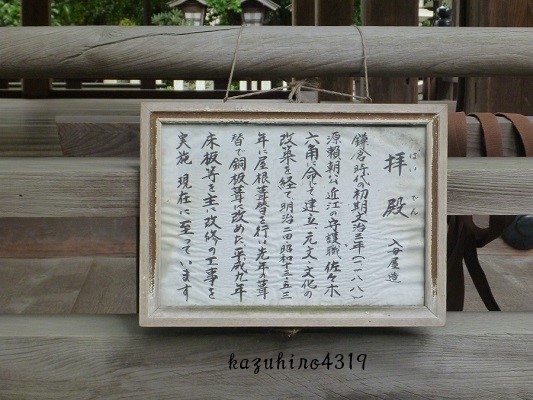 拝殿 入母屋造
はいでん
鎌倉時代の初期文治三年(一一八八)
源頼朝公近江の守護職佐々木
六角に命じて建立、元文、文化の
改築を経て明治二四、昭和十三、五三
年に屋根葺替を行い先年の葺
替で銅板葺に改めた、平成九年
床板等を主に改修の工事を
実施 現在に至っています
kazuhiro4319